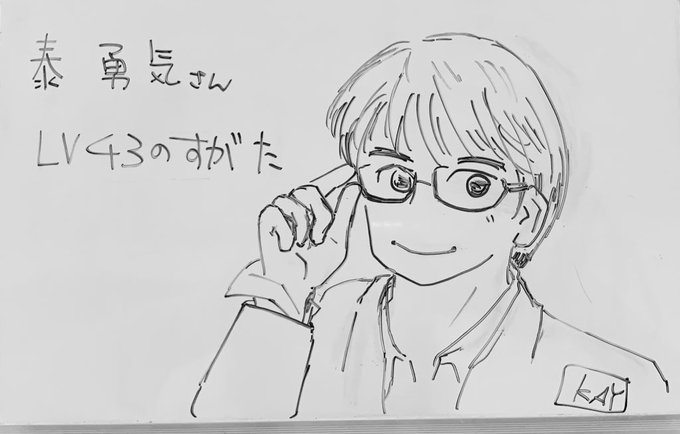 泰 勇気さん
LV43のすがた
KAY